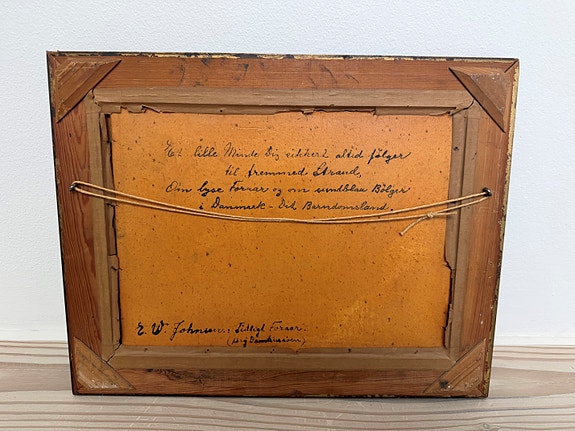 Et lille Minde Dig sikkert altid følger
til fremmed Strand,
Om lyse Foraar og om sundblaa Bølger
i Danmark - Dit Barndomsland.
E. W. Johnsen: Tidligt Foraar.